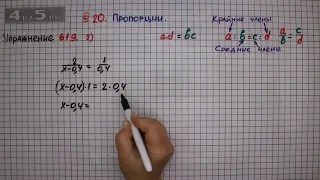 4na5.ru
§ 20. Пропорции.
Упражнение 619. 2)
ad = bc
Крайние члены
a : b = c : d
a/b = c/d
Средние члены
2/(x-0,4) = 1/0,4
(x-0,4)·1 = 2·0,4
x-0,4 =